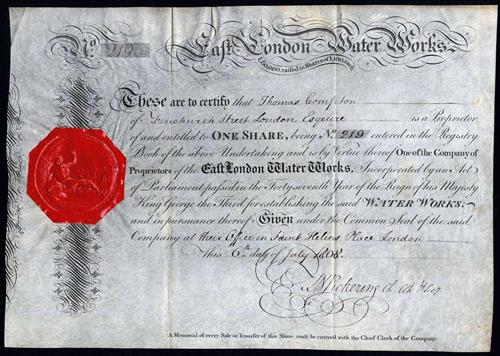 No. 219 East London Water Works.
£60,000, raised in Shares of £100, each
These are to certify that Thomas Compton
of Fenchurch Street London Esquire is a Proprietor
of and entitled to ONE SHARE, being No. 219 entered in the Registry
Book of the above Undertaking and is by Virtue thereof One of the Company of
Proprietors of the East London Water Works, Incorporated by an Act
of Parliament passed in the Forty seventh Year of the Reign of his Majesty
King George the Third for establishing the said WATER WORKS.
and in pursuance thereof Given under the Common Seal of the said
Company at their Office in Saint Helens Place London
this 6th day of July 1808.
Pickering Ch. Clk
A Memorial of every Sale or Transfer of this Share, must be entered with the Chief Clerk of the Company.